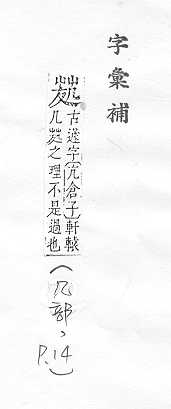 字彙補
古字亢倉子軒轅
几之理不是過也
(几部，P.14)